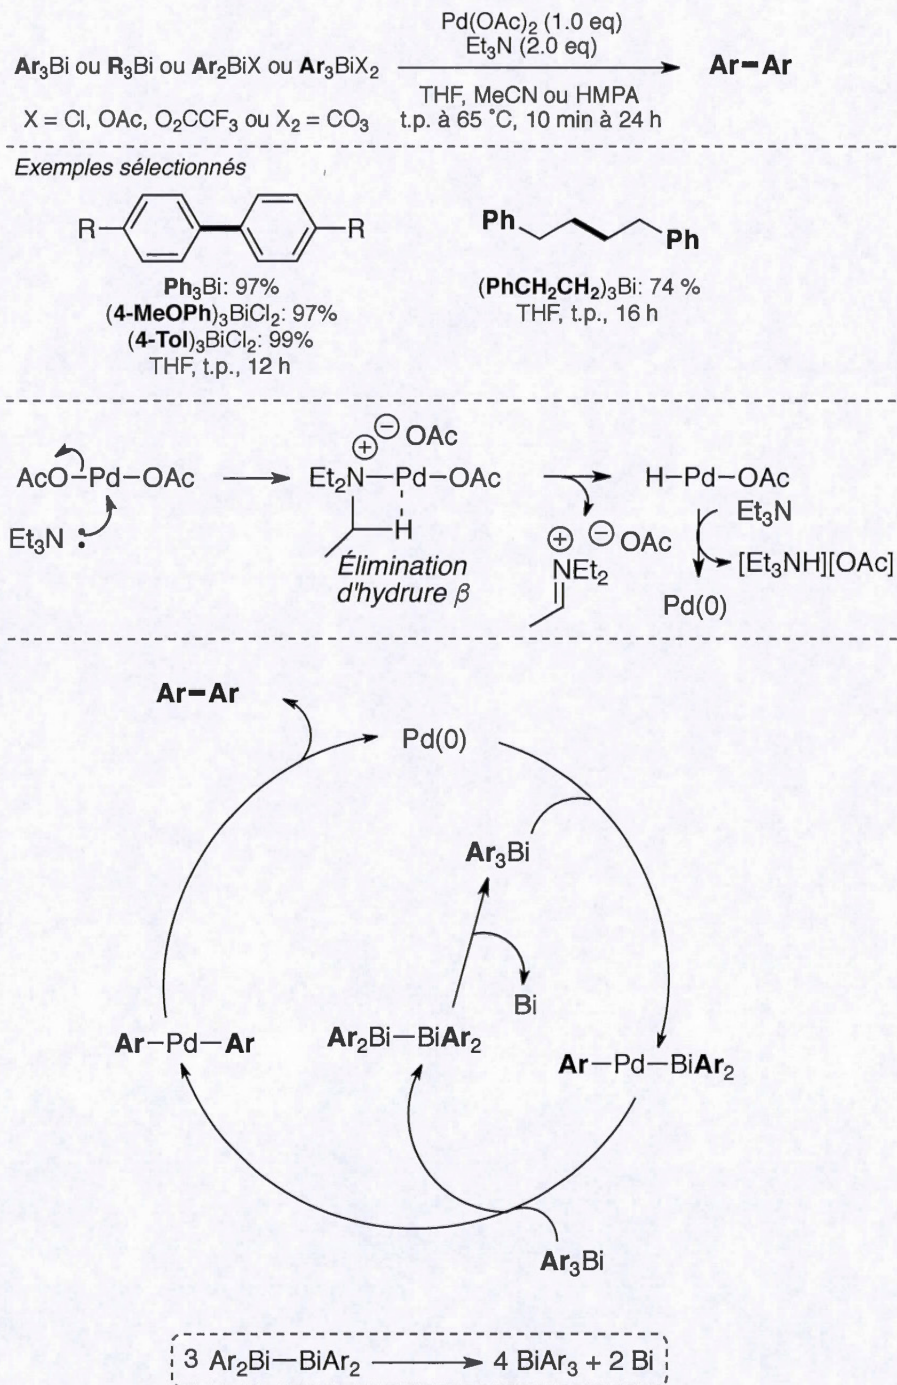 Pd(OAc)2 (1.0 eq)
Et3N (2.0 eq)
Ar3Bi ou R3Bi ou Ar2BiX ou Ar3BiX2
Ar–Ar
X = Cl, OAc, O2CCF3 ou X2 = CO3
THF, MeCN ou HMPA
t.p. à 65 °C, 10 min à 24 h
Exemples sélectionnés
R R
Ph Ph
Ph3Bi: 97%
(4-MeOPh)3BiCl2: 97%
(4-Tol)3BiCl2: 99%
THF, t.p., 12 h
(PhCH2CH2)3Bi: 74 %
THF, t.p., 16 h
AcO–Pd–OAc
Et3N :
+ − OAc
Et2N–Pd–OAc
H
Élimination
d'hydrure β
+ − OAc
NEt2
H–Pd–OAc
Et3N
[Et3NH][OAc]
Pd(0)
Ar–Ar
Pd(0)
Ar3Bi
Bi
Ar–Pd–Ar
Ar2Bi–BiAr2
Ar–Pd–BiAr2
Ar3Bi
3 Ar2Bi–BiAr2 → 4 BiAr3 + 2 Bi